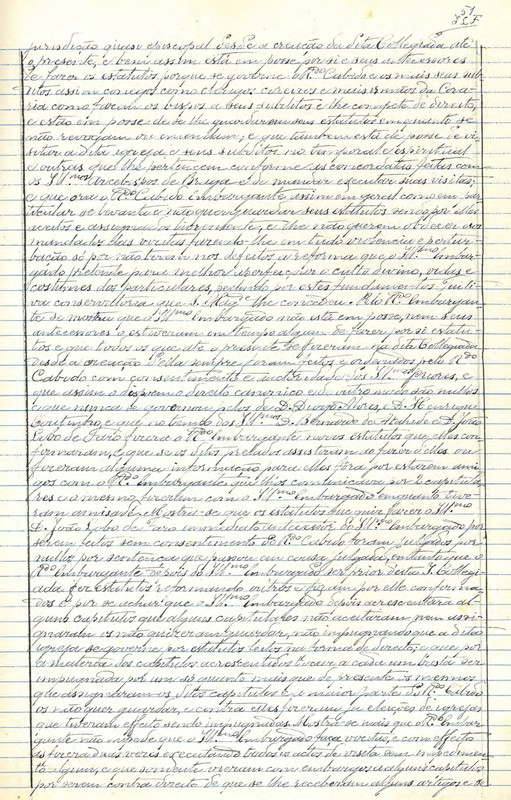 jurisdição quasi episcopal desde a creição da dita Collegiada até
o presente, e bem assim está em posse por si e seus antecessores
de fazer os estatutos porque se governe o Rdo Cabido e os mais seus sub-
ditos assim conegos como clerigos coreiros e mais irmãos da Coraria
como fazem os bispos a seus subditos e lhe compete de direito,
e estão em posse de se lhe guardarem seus estatutos emquanto se
não revogam ou emendam; e que tambem está de posse de vi-
sitar a dita igreja e seus subditos no temporal e espiritual
e outras que lhe pertencem conforme as concordatas feitas com
os Illmos Arcebispos de Braga e de mandar executar suas visitas;
e que ora o Rdo Cabido embargante assim em geral como em par-
ticular se levanta e não quer guardar seus estatutos senão por elles
acceitos e assignados, e lhe não querem obedecer aos
mandados das visitas fazendo-lhe em tudo violencia e pertur-
bação só por não terem nos defeitos a reforma que o Illmo Embar-
gado pretende para melhor aperfeiçoar o culto divino, vidas e
costumes dos particulares, pedindo por estes fundamentos
conservatoria que S. Magde lhe concedeu. Pelo Rdo Embargante
se mostra que o Illmo Embargado não está em posse, nem seus
antecessores o estiveram em tempo algum de fazer por si estatu-
tos e que todos os que até o presente se fizeram na dita Collegiada
desde a creação d'ella sempre foram feitos e ordenados pelo Rdo
Cabido com consentimento e auctoridade dos Illmos Priores, e
que assim o dispoem o direito canonico e de outro modo são nullos
e que nunca se governou pelos de D. Diogo Alvres e D. Henrique
Coutinho e que no tempo dos Illmos D. Bernardo de Athayde e D. João
Lobo de Faro fizera o Rdo Embargante novos estatutos que elles con-
firmaram, e que se os ditos prelados assistiram ao fazer d'elles ou
fizeram alguma informação para elles fôra por estarem ami-
gos com o Rdo Embargante que lh'os communicára por 2 capitula-
res e o mesmo fizeram com o Illmo Embargado emquanto tive-
ram amisade. Mostra-se que os estatutos que quiz fazer o Illmo
D. João Lobo de Faro immediato antecessor do Illmo Embargado por
serem feitos sem consentimento do Rdo Cabido foram julgados por
nullos por sentença que passou em causa julgada, e tanto que o
Rdo Embargante depois do Illmo Embargado ser prior d'esta I. Collegi-
ada fez estatutos reformando outros e foram por elle confirma-
dos e por se achar que o Illmo Embargado depois acrescentára al-
guns capitulos que alguns capitulares não acceitaram nem assi-
gnaram os não quizeram guardar, não impugnando que a dita
igreja se governe por estatutos feitos na forma de direito; e que por
a materia dos capitulos acrescentados tocar a cada um basta ser
impugnada por um só quanto mais que de presente os mesmos
que assignaram os ditos capitulos e a maior parte do Rdo Cabido
os não quer guardar, e contra elles fizeram já eleições de igrejas
que tiveram effeito sendo impugnadas. Mostra-se mais que o Rdo Embar-
gante não impede que o Illmo Embargado faça visitas, e com effeito
as fizera duas vezes executando todos os actos de visita sem impedimen-
to algum, e que somente vieram com embargos a alguns capitulos
por serem contra direito de que se lhe receberam alguns artigos e se